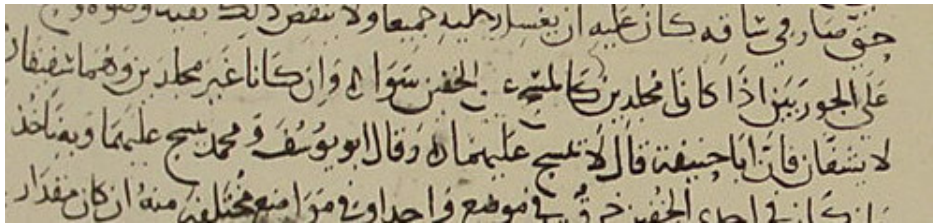 حتى صار في ساقه كان عليه ان يغسل رجليه جميعا ولا ينقض ذلك بقية وضوءه و
على الجوربين اذا كانا مجلدين كالمسح على الخفين سواء وان كانا غير مجلدين وهما صفيقان
لا يشفان فان ابا حنيفة قال لا يمسح عليهما وقال ابو يوسف ومحمد يمسح عليهما وبه ناخذ
وان كان في احدى الخفين خرق في موضع واحد او في مواضع مختلفة منه ان كان مقدار